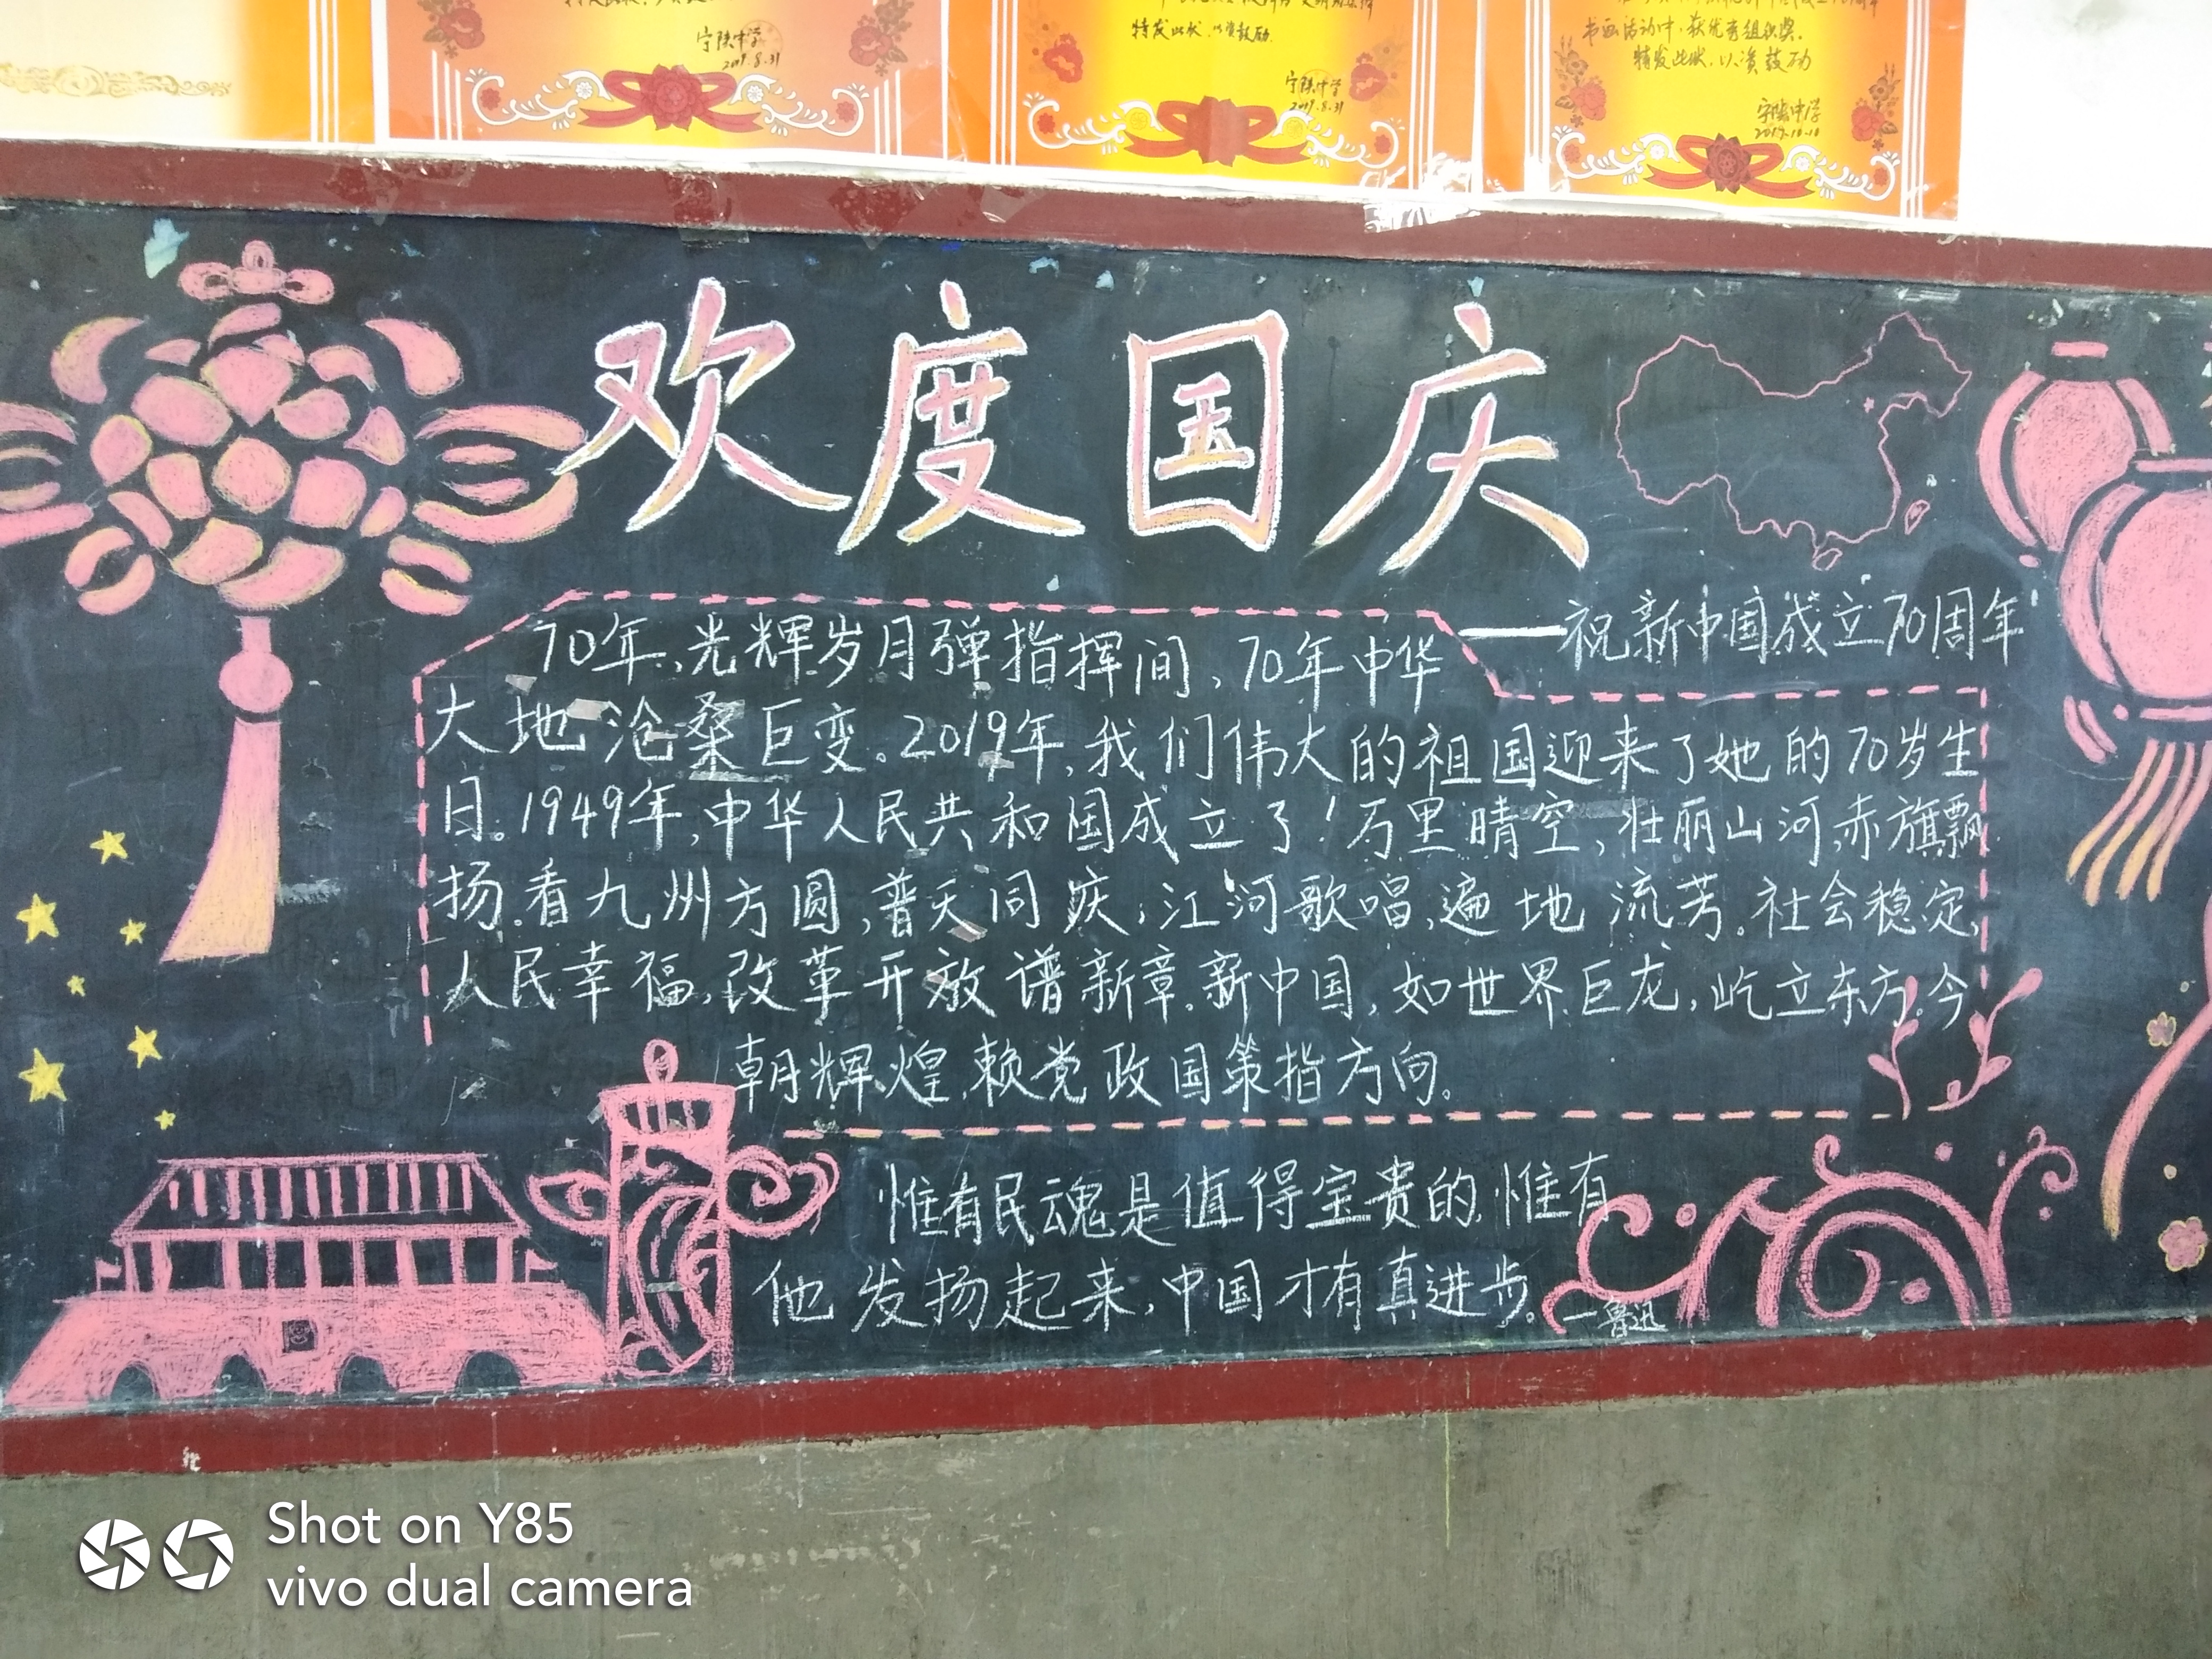 宁陕中学
2019.8.31
特发此状,以资鼓励.
宁陕中学
2019.8.31
书画活动中,获优秀组织奖.
特发此状,以资鼓励
宁陕中学
2019.10.10
欢度国庆
——祝新中国成立70周年
70年,光辉岁月弹指挥间,70年中华
大地沧桑巨变。2019年,我们伟大的祖国迎来了她的70岁生
日。1949年,中华人民共和国成立了!万里晴空,壮丽山河,赤旗飘
扬.看九州方圆,普天同庆;江河歌唱,遍地流芳.社会稳定,
人民幸福,改革开放谱新章.新中国,如世界巨龙,屹立东方.今
朝辉煌,赖党政国策指方向。
惟有民魂是值得宝贵的,惟有
他发扬起来,中国才有真进步。—鲁迅
Shot on Y85
vivo dual camera